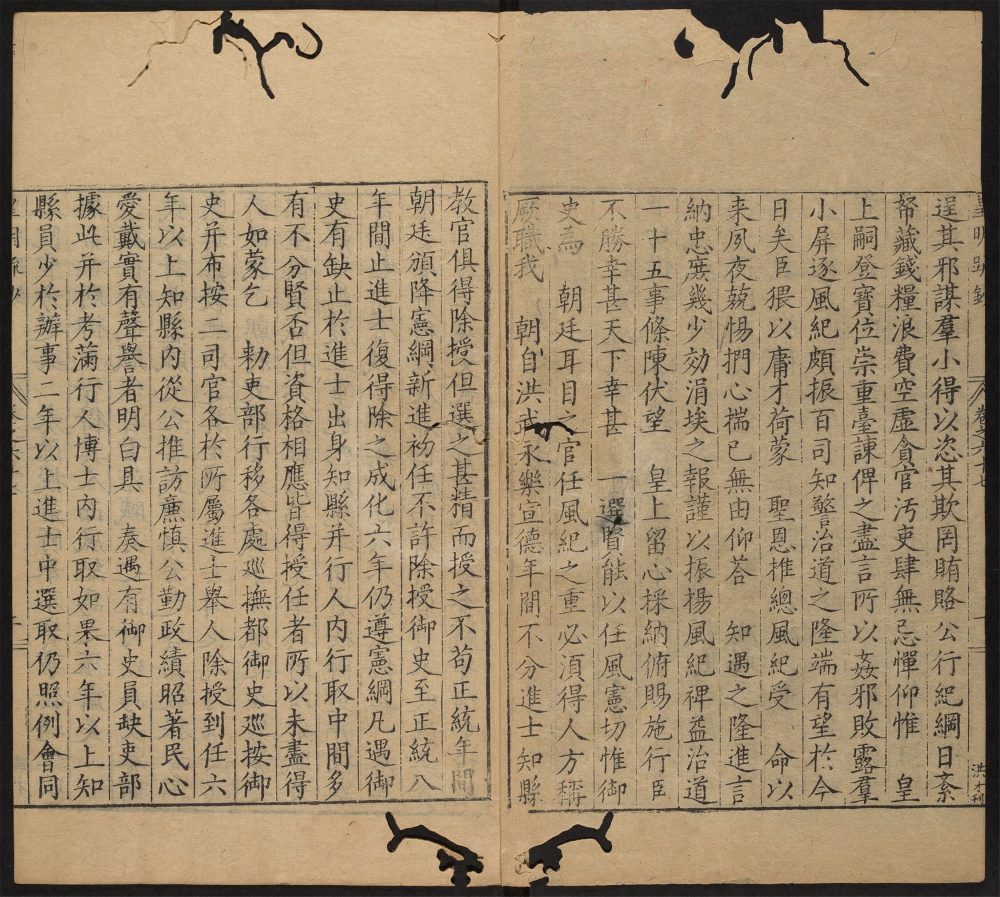 逞其邪謀羣小得以恣其欺罔賄賂公行紀綱日紊
帑藏錢糧浪費空虛貪官汚吏肆無忌憚仰惟　皇
上嗣登寶位崇重臺諫俾之盡言所以姦邪敗露羣
小屏逐風紀頗振百司知警治道之隆端有望於今
日矣臣猥以庸才荷蒙　聖恩惟總風紀受　命以
来夙夜兢惕捫心揣已無由仰荅　知遇之隆進言
納忠庶幾少効涓埃之報謹以振揚風紀禆益治道
一十五事條陳伏望　皇上留心採納俯賜施行臣
不勝幸甚天下幸甚　一選賢能以任風憲切惟御
史爲　朝廷耳目之官任風紀之重必須得人方稱
厥職我　朝自洪武永樂宣德年間不分進士知縣
教官俱得除授但選之甚精而授之不苟正統年間
朝廷頒降憲綱新進初任不許除授御史至正統八
年間止進士復得除之成化六年仍遵憲綱凡遇御
史有缺止於進士出身知縣并行人内行取中間多
有不分賢否但資格相應皆得授任者所以未盡得
人如蒙乞　勅吏部行移各處巡撫都御史巡按御
史并布按二司官各於所屬進士舉人除授到任六
年以上知縣内從公推訪廉慎公勤政績昭著民心
愛戴實有聲譽者明白具　奏遇有御史員缺吏部
據此并於考滿行人博士内行取如果六年以上知
縣員少於辦事二年以上進士中選取仍照例會同